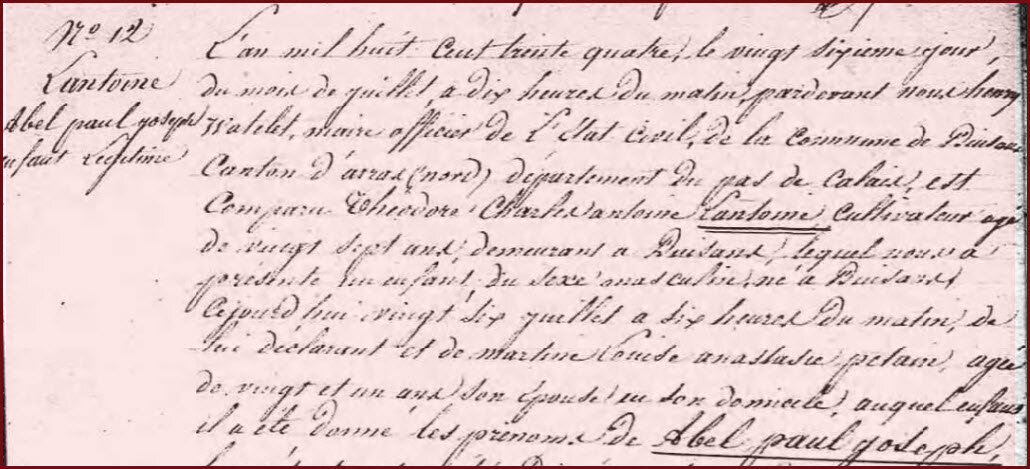 No 12
Lantoine
Abel paul joseph
enfant Legitime
L'an mil huit cent trente quatre, le vingt sixieme jour,
du mois de juillet, a dix heures du matin, pardevant nous henry
Watelet, maire officier de L'Etat Civil, de la Commune de Duisans
Canton d'arras (nord) département du pas de Calais, est
Comparu Théodore Charles antoine Lantoine, cultivateur agé
de vingt sept ans, demeurant a Duisans, lequel nous a
présenté un enfant, du sexe masculin, né a Duisans,
Cejourd'hui vingt six juillet a six heures du matin, de
lui déclarant et de martine Louise anastasie petain, agée
de vingt et un ans son épouse en son domicile, auquel enfant
il a été donné les prénoms de Abel paul joseph,